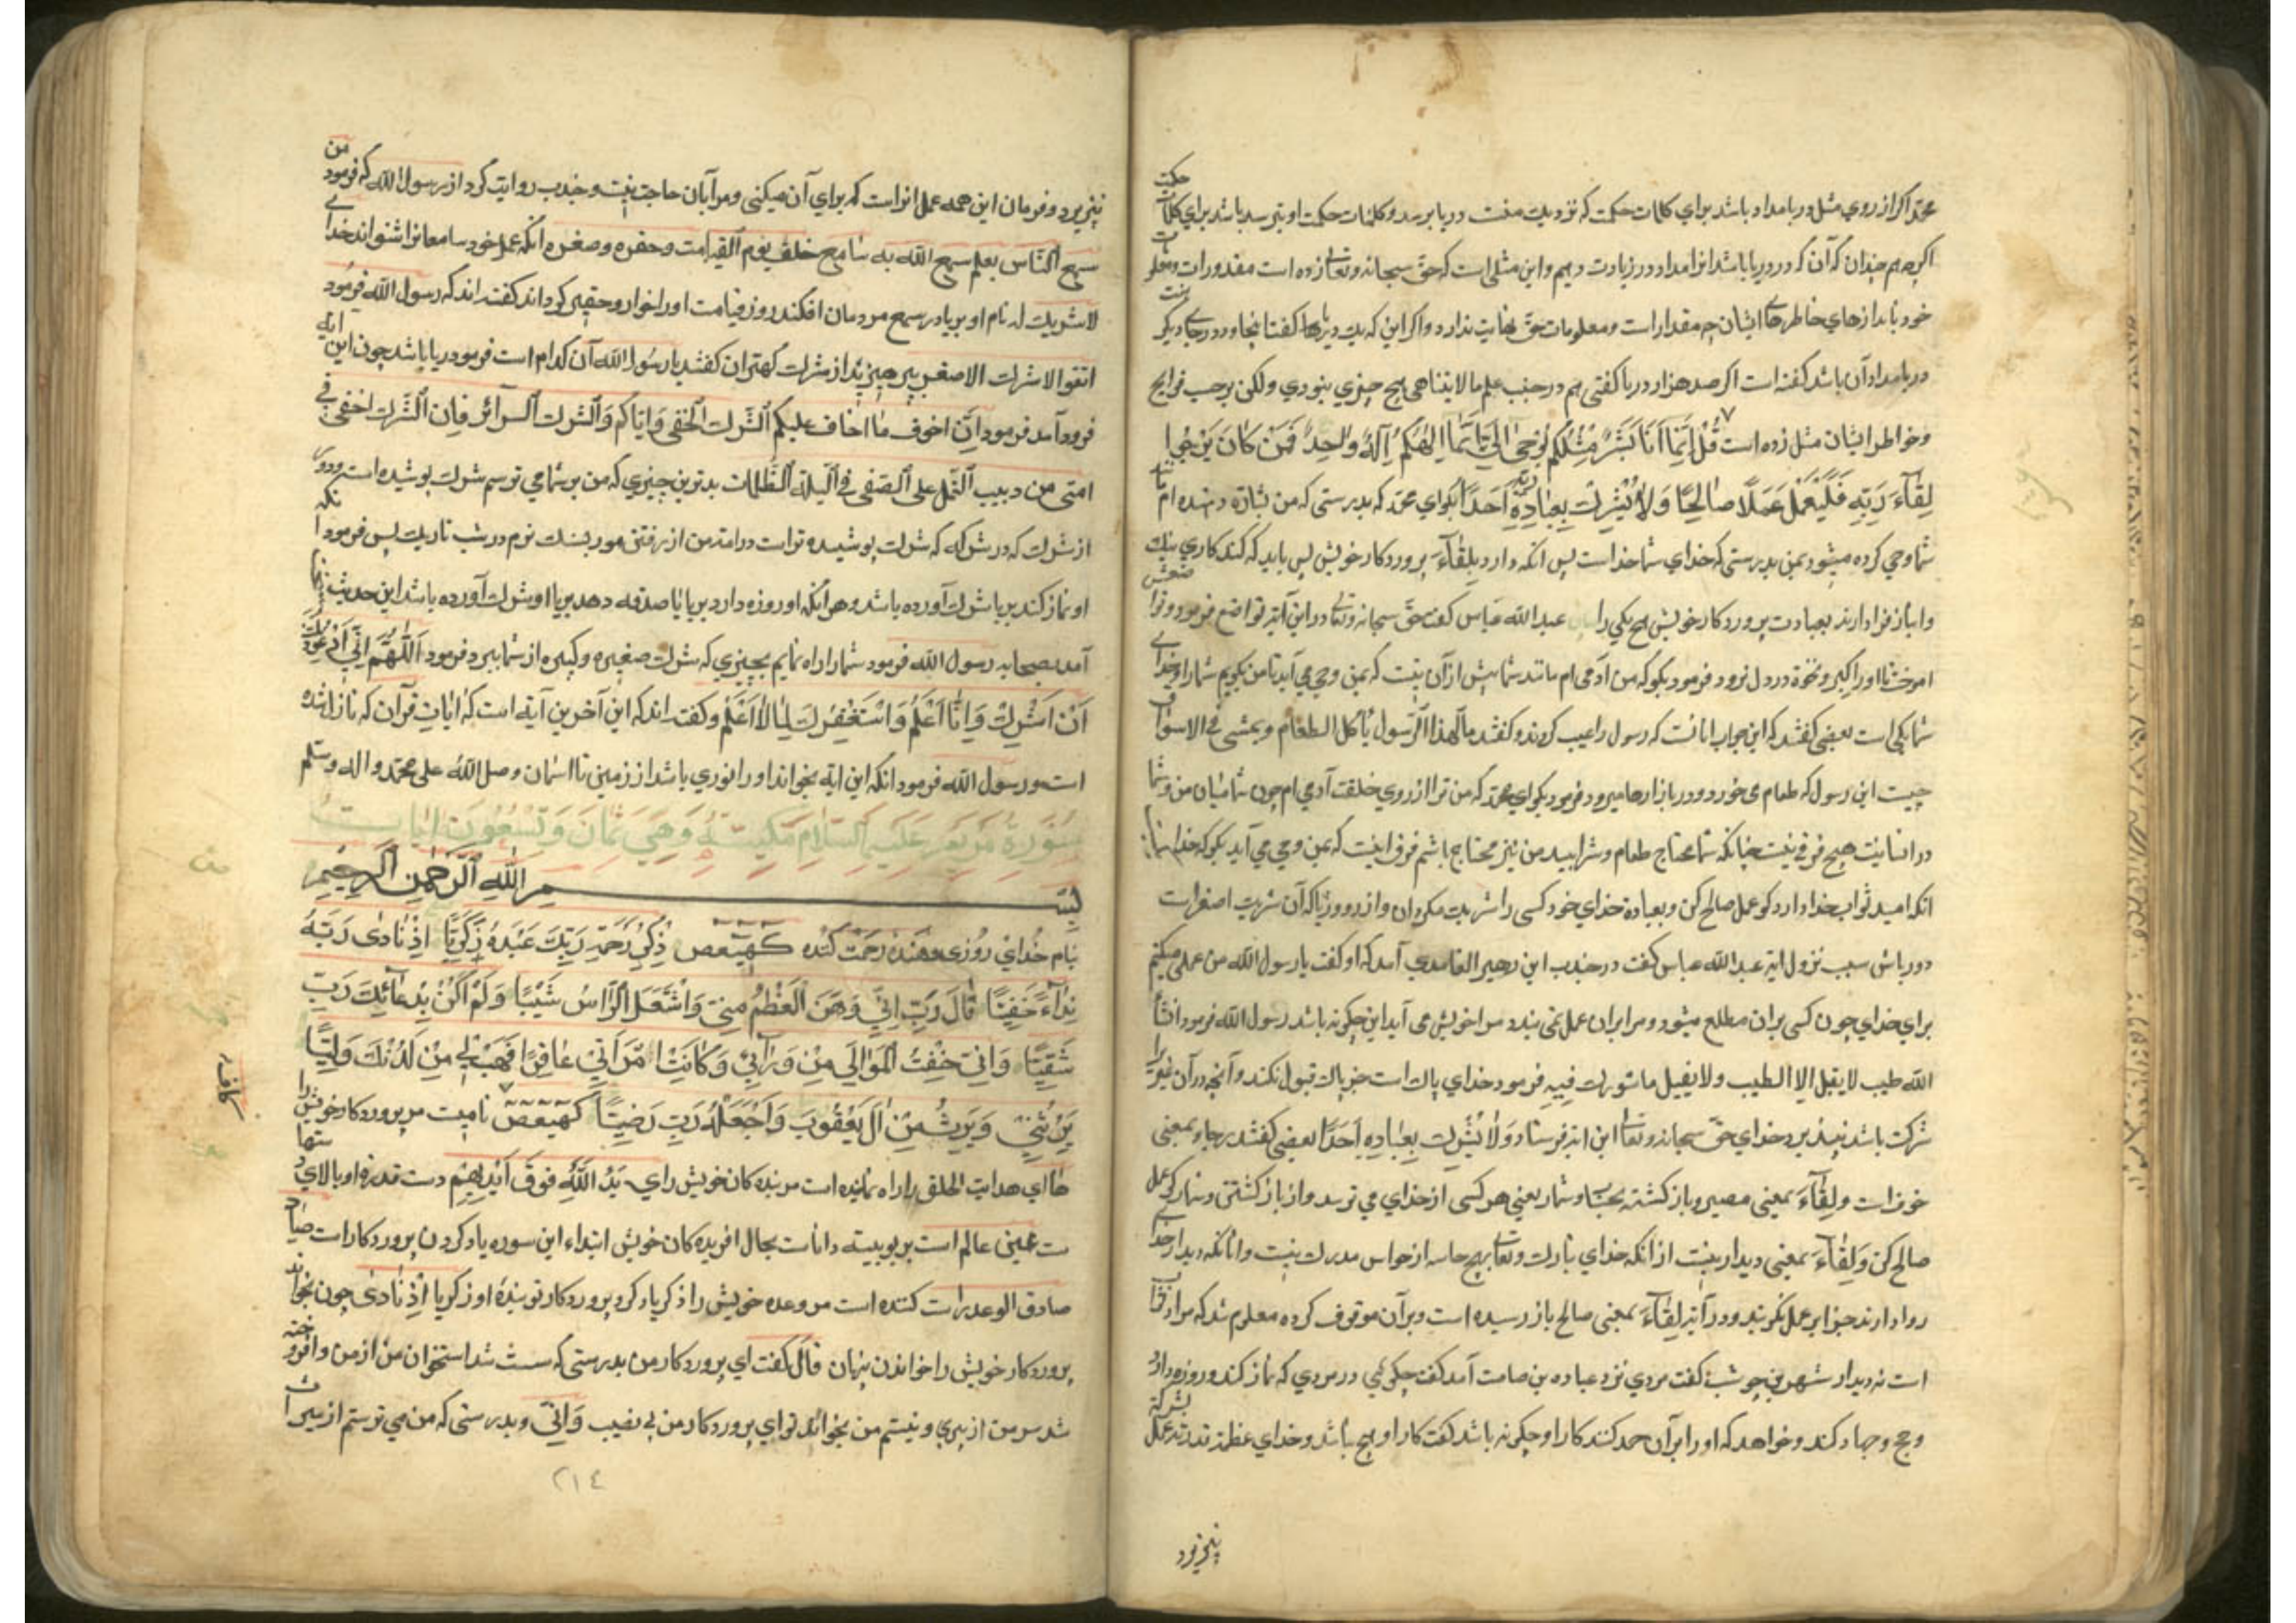 محمد اگر از روی مثل دریا مداد باشد برای کلمات حکمت که نزدیک هفت دریا برسد و کلمات حکمت او بنرسد باشد برای کلمات حکمت
اگر هم چندان که آن که در دریا باشد انرا مداد در زیادت دهیم و این مثلی است که حق سبحانه و تعالی زده است مقدورات و معلومات
خود بانداز های خاطرهای ایشان چه مقدار است و معلومات حق نهایت ندارد و اگر این که یک دریا
دریا مداد آن باشد گفته است اگر صد هزار دریا گفتی هم در جنب علم ما لایتناهی هیچ چیزی بنودی ولکن برحسب
و خواطر ایشان مثل زده است قُلْ اِنَّمَا اَنَا بَشَرٌ مِثْلُكُمْ يُوحٰى اِلَيَّ اَنَّمَا اِلٰهُكُمْ اِلٰهٌ وَاحِدٌ فَمَنْ كَانَ يَرْجُوا
لِقَاءَ رَبِّهِ فَلْيَعْمَلْ عَمَلًا صَالِحًا وَلَا يُشْرِكْ بِعِبَادَةِ رَبِّهِ اَحَدًا بگو ای محمد که بدرستی که من بشارة دهنده ام
شما وحی کرده میشود بمن بدرستی که خدای شما خدا است پس انکه دارد بلقاء پروردکار خویش پس باید که کند کاری نیک
و انباز فرا ندارند بعبادت پروردکار خویش هیچ یکی را عبد الله عباس گفت حق سبحانه و تعالی در این آیة تواضع فرمود
اموخت تا او را کبر و نخوة در دل نرود فرمود بگو که من آدمی ام مانند شما بیش از آن نیست که بمن وحی می آید تا من بگویم شما را خدای
شما یکی است بعضی گفتند که این جواب انانست که رسول را عیب کردند و گفتند مال هذا الرسول یأکل الطعام و یمشی فی الاسواق
چیست این رسول که طعام می خورد و در بازارها میرود فرمود بگو ای محمد که من ترا از روی خلقت آدمی ام چون شما میان من و شما
در انسانیت هیچ فرقی نیست چنانکه شما محتاج طعام و شرابید من نیز محتاج باشم فرق اینست که بمن وحی می آید بگو که
انکه امید ثواب خدا دارد گو عمل صالح کن و بعبادة خدای خود کسی را شریک مگردان و از رو و ریا که آن شرک اصغر است
دور باش سبب نزول آیة عبد الله عباس گفت در جندب ابن زهیر العامدی آمد که او گفت یا رسول الله من عملی میکنم
برای خدای چون کسی بران مطلع میشود و مرا بران عمل می بیند مرا خوش می آید این چگونه باشد رسول الله فرمود
الله طیب لا یقبل الا الطیب و لا یقبل ما شورک فیه فرمود خدای پاک است جز پاک قبول نکند و آنچه در آن غیر را
شرکت باشد نپذیرد خدای حق سبحانه و تعالی این آیة فرستاد وَلَا يُشْرِكْ بِعِبَادَةِ اَحَدًا بعضی گفتند رجاء بمعنی
خوف است و لِقَاءَ بمعنی مصیر و باز گشتن بحساب و شمار یعنی هر کسی از خدای می ترسد و از باز گشتن و شمار گو عمل
صالح کن وَ لِقَاءَ بمعنی دیدار نیست از انکه خدای تبارک و تعالی بهیچ حاسه از حواس مدرک نیست و انانکه دیدار خدا
روا دارند جز ابر عمل نگویند و در آیة لِقَاءَ بمعنی صالح باز رسیده است و بر آن موقوف کرده معلوم شد که مراد
است نه دیدار شهر بن حوشب گفت مردی نزد عباده بن صامت آمد گفت چگوئی در مردی که نماز کند و روزه دارد
و حج و جهاد کند و خواهد که او را بر آن حمد کنند کار او چگونه باشد گفت کار او هیچ باشد و خدای عظمة قدرته
نپذیرد
نپذیرد و فرمان این همه عمل انراست که برای آن میکنی و مرا بآن حاجت نیست و جندب روایت کرد از رسول الله که فرمود من
سمع الناس بعلم سمع الله به سامع خلقه یوم القیامت و حقره و صغره انکه عمل خود سامعانرا شنواند خدای
لا شریک له نام او بریا در سمع مردمان افکند روز قیامت او را خوار و حقیر گرداند گفته اند که رسول الله فرمود
اتقوا الاشرک الاصغر بپرهیزید از شرک کهتران گفتند یا رسول الله آن کدام است فرمود ریا باشد چون این آیة
فرود آمد فرمود اِنَّ اخوف ما اخاف علیکم الشرک الخفی و ایاکم و الشرک السرائر فان الشرک اخفی فی
امتی من دبیب النمل علی الصفی فی اللیلة الظلمات بدترین چیزی که من بر شما می ترسم شرک پوشیده است
از شرک که در شرکه که شرک پوشیده تر است در امت من از رفتن مور بسنگ نرم در شب تاریک پس فرمود انکه
او نماز کند بریا شرک آورده باشد و هر آنکه او روزه دارد بریا یا صدقه دهد بریا او شرک آورده باشد این حدیث
آمد بصحابه رسول الله فرمود شما را راه نمایم بچیزی که شرک صغیره و کبیره از شما ببرد فرمود اَللّٰهُمَّ اِنِّي اَعُوذُ بِكَ
اَنْ اُشْرِكَ وَ اَنَا اَعْلَمُ وَاَسْتَغْفِرُكَ لِمَا لَا اَعْلَمُ و گفته اند که این آخرین آیة است که ایات قرآن که نازل شده
است و رسول الله فرمود انکه این آیة بخواند او را نوری باشد از زمین تا اسمان و صل الله علی محمد و اله و سلم
سُورَةُ مَرْيَمَ عَلَيْهِ السَّلَامُ مَكِّيَّةٌ وَهِيَ ثَمَانَ وَتِسْعُونَ اٰيَاتٍ
بِسْمِ اللهِ الرَّحْمٰنِ الرَّحِيمِ
بنام خدای روزی دهنده رحمت کننده كهيعص ذِكْرُ رَحْمَةِ رَبِّكَ عَبْدَهُ زَكَرِيَّا اِذْ نَادٰى رَبَّهُ
نِدَاءً خَفِيًّا قَالَ رَبِّ اِنِّي وَهَنَ الْعَظْمُ مِنِّي وَاشْتَعَلَ الرَّاسُ شَيْبًا وَلَمْ اَكُنْ بِدُعَائِكَ رَبِّ
شَقِيًّا وَاِنِّي خِفْتُ الْمَوَالِيَ مِنْ وَرَائِي وَكَانَتِ امْرَاَتِي عَاقِرًا فَهَبْ لِي مِنْ لَدُنْكَ وَلِيًّا
يَرِثُنِي وَيَرِثُ مِنْ اٰلِ يَعْقُوبَ وَاجْعَلْهُ رَبِّ رَضِيًّا كهيعص نامیست مر پروردکار خویش را
ها ای هدایت الخلق را راه نماینده است مر بنده کان خویش را ی يَدُ اللهِ فَوْقَ اَيْدِيهِمْ دست قدرة او بالای دستها
ست عینی عالم است بربوبیته داناست بحال افریده کان خویش ابتداء این سوره یاد کردن پروردکار است صاد
صادق الوعد راست کننده است مر وعده خویش را ذکر یاد کرد پروردکار تو بندهٔ او زکریا اِذْ نَادٰى چون بخواند
پروردکار خویش را خواندن پنهان قَالَ گفت ای پروردکار من بدرستی که سست شد استخوان من از من و افروخته
شد سر من از پیری و نیستم من بخواندن تو ای پروردکار من بی نصیب وَاِنِّي و بدرستی که من می ترسم از میراث
٢١٤